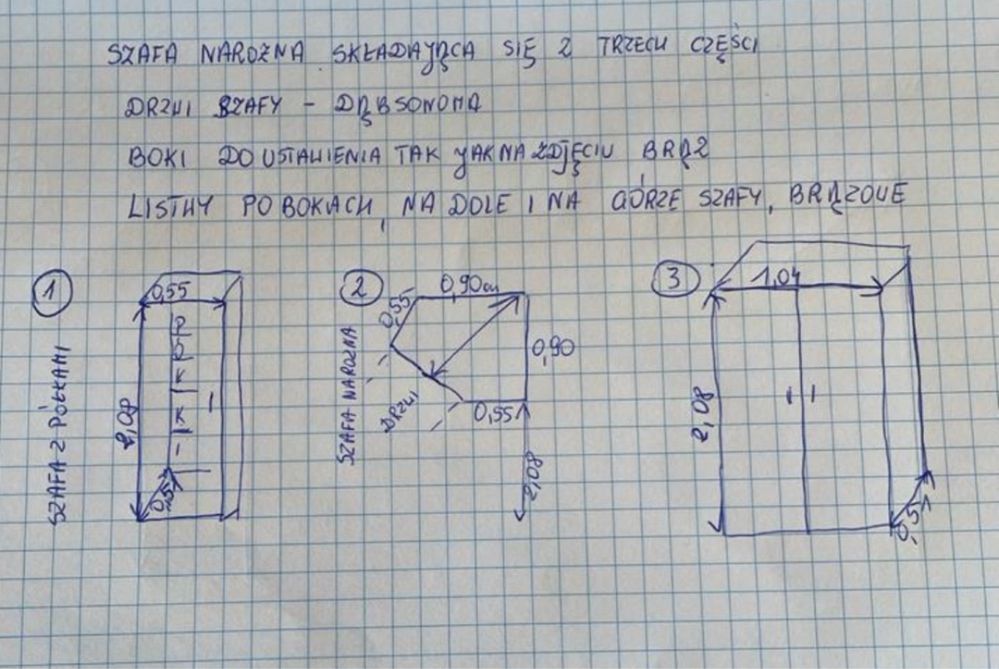 SZAFA NAROŻNA SKŁADAJĄCA SIĘ Z TRZECH CZĘŚCI
DRZWI SZAFY - DĄB SONOMA
BOKI DO USTAWIENIA TAK JAK NA ZDJĘCIU, BRĄZ
LISTWY PO BOKACH, NA DOLE I NA GÓRZE SZAFY, BRĄZOWE
1
0,55
2,08
SZAFA Z PÓŁKAMI
2
0,90cm
0,55
0,90
0,55
2,08
DRZWI
SZAFA NAROŻNA
3
1,04
2,08